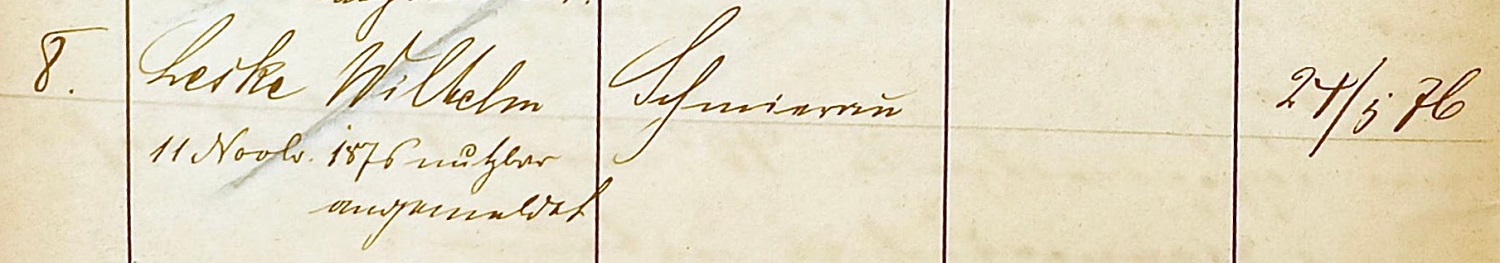 8. Leske Wilhelm Schmierau 24/5 76
11 Novbr. 1876 nutzbar
angemeldet